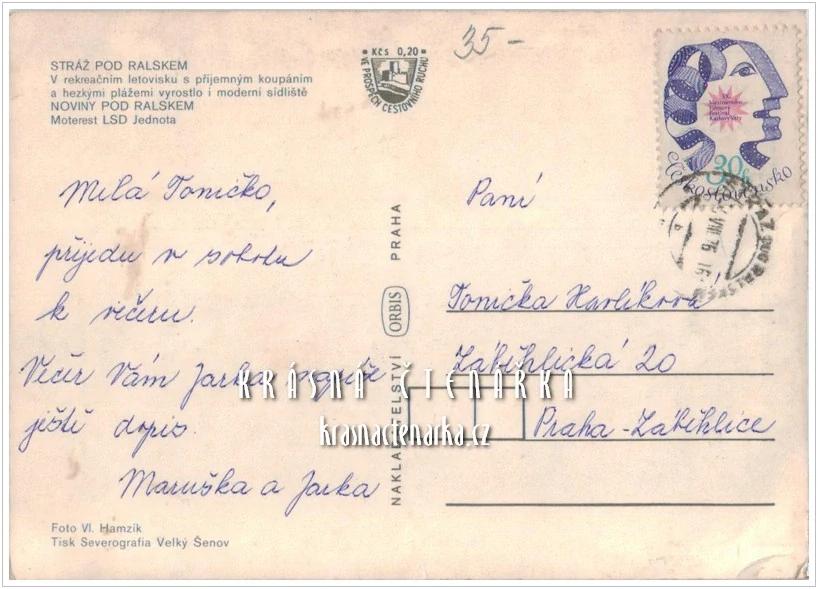 STRÁŽ POD RALSKEM
V rekreačním letovisku s příjemným koupáním
a hezkými plážemi vyrostlo i moderní sídliště
NOVINY POD RALSKEM
Moterest LSD Jednota
Kčs 0,20
VE PROSPĚCH CESTOVNÍHO RUCHU
35-
30h
Československo
Milá Toničko,
přijedu v sobotu
k večeru.
Večer Vám Jarka napíše
ještě dopis.
Maruška a Jarka
Foto Vl. Hamzík
Tisk Severografia Velký Šenov
NAKLADATELSTVÍ ORBIS PRAHA
Paní
Tonička Havlíková
Záběhlická 20
Praha-Záběhlice
KRÁSNÁ ČTENÁŘKA
krasnactenarka.cz